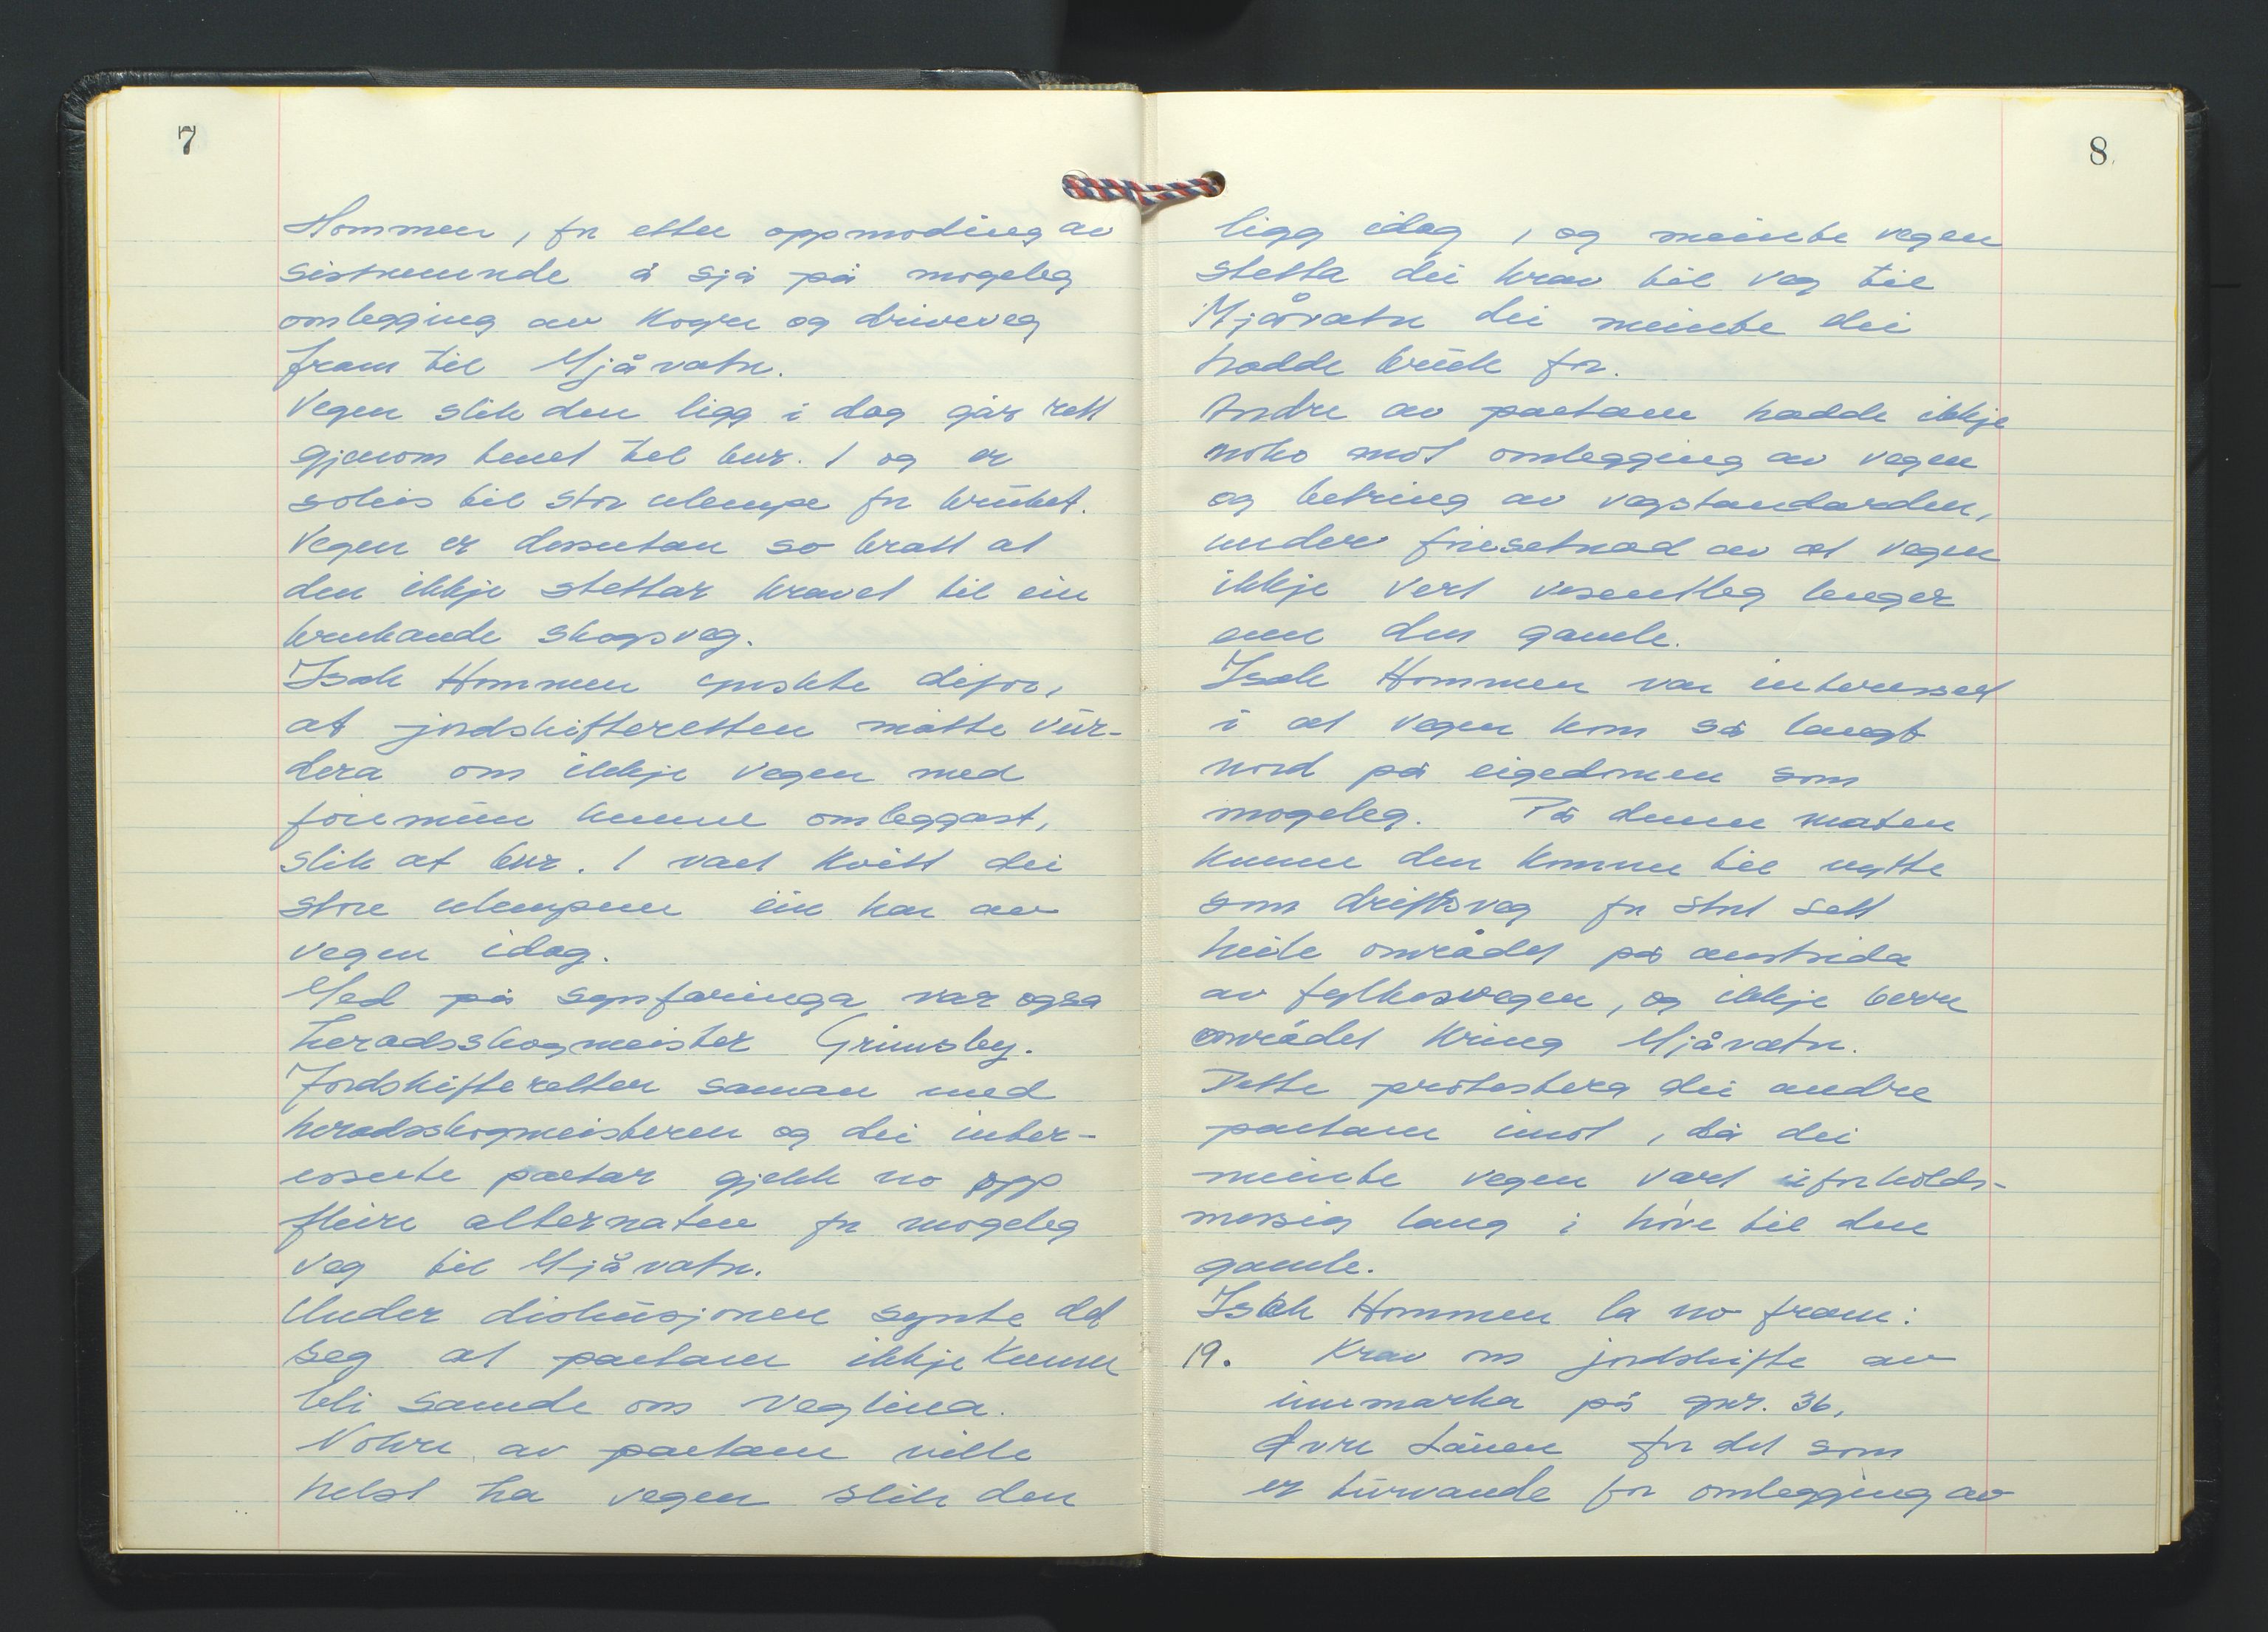 7
Hommen, for etter oppmoding av
sistnemnde å sjå på mogeleg
omlegging av kogn og driveveg
fram til Mjåvatn.
Vegen slik den ligg i dag går rett
gjenom tunet til bnr. 1 og er
soleis til stor ulempe for bruket.
Vegen er dessutan so bratt at
den ikkje stettar kravet til ein
brukande skogsveg.
Isak Hommen ynskte difor,
at jordskifteretten måtte vur-
dera om ikkje vegen med
føremun kunne omleggast,
slik at bnr. 1 vart kvitt dei
store ulempene ein har av
vegen idag.
Med på synfaringa var også
heradsskogmeister Grimsby.
Jordskifteretten saman med
heradsskogmeisteren og dei inter-
esserte partar gjekk no opp
fleire alternativ for mogeleg
veg til Mjåvatn.
Under diskusjonen synte det
seg at partane ikkje kunne
bli samde om veglina.
Nokre av partane ville
helst ha vegen slik den
8
ligg idag, og meinte vegen
stetta dei krav til veg til
Mjåvatn dei meinte dei
hadde bruk for.
Andre av partane hadde ikkje
noko mot omlegging av vegen
og betring av vegstandarden,
under føresetnad av at vegen
ikkje vert vesentleg lenger
enn den gamle.
Isak Hommen var interessert
i at vegen kom så langt
nord på eigedomen som
mogeleg. På denne måten
kunne den komme til nytte
som driftsveg for stort sett
heile området på austsida
av fylkesvegen, og ikkje berre
området kring Mjåvatn.
Dette protestera dei andre
partane imot, då dei
meinte vegen vart uforholds-
messig lang i høve til den
gamle.
Isak Hommen la no fram:
19. Krav om jordskifte av
innmarka på gnr. 36,
Øvre Lauen for det som
er turvande for omlegging av